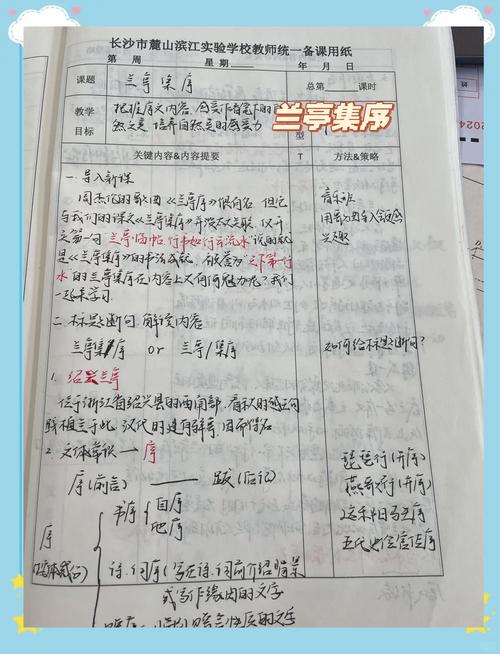 长沙市麓山滨江实验学校教师统一备课用纸
第 周 星期 年 月 日
课题 兰亭集序 总第 课时
教学目标 根据序文内容,感受作者笔下的自然之美 培养自然美的感受力 型
兰亭集序
关键内容&内容提要 T 方法&策略
一.导入新课
周杰伦的歌曲《兰亭序》很闻名,但它
与我们的课文《兰亭集序》并没太大关联,仅开
头第一句"兰亭临帖,行书如行云流水"说的就
是《兰亭集序》的书法成就,被誉为"天下第一行
水"的兰亭集序在内容上又有何魅力呢?我们
一起来学习.
音乐
用歌曲导入
兴趣
二.标题断句,解读内容
兰亭集/序 or 兰亭/集序
如何给标题断句?
1.绍兴兰亭
位于浙江省绍兴县的西南部,春秋时越王勾
践植兰于此,汉代时建有驿亭,因而得名
2.文体常识—序
序(前言) —— 跋(后记)
序
书序
自序
他序
诗、词序(写在诗、词前介绍背景
或写作缘由的文字
琵琶行(并序)
燕歌行(并序)
五代史伶官传序